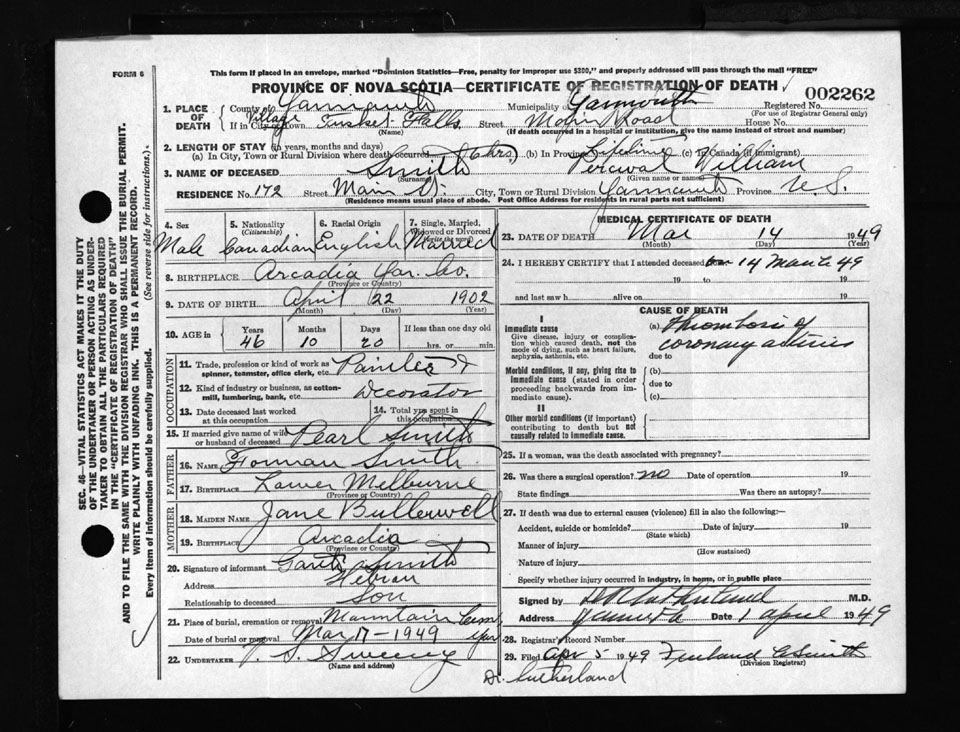 FORM 6
This form if placed in an envelope, marked "Dominion Statistics—Free, penalty for improper use $300," and properly addressed will pass through the mail "FREE"
PROVINCE OF NOVA SCOTIA—CERTIFICATE OF REGISTRATION OF DEATH
002262
1. PLACE OF DEATH
County of Yarmouth Municipality of Yarmouth Registered No.
(For use of Registrar General only)
Village
If in City or Town Tusket Falls Street Road House No.
(Name) (If death occurred in a hospital or institution, give the name instead of street and number)
2. LENGTH OF STAY (in years, months and days)
(a) In City, Town or Rural Division where death occurred 6 hrs, (b) In Province Lifetime (c) In Canada (if immigrant)
3. NAME OF DECEASED Smith William
(Surname) (Given name or names)
RESIDENCE No. 172 Street Main St. City, Town or Rural Division Yarmouth Province N.S.
(Residence means usual place of abode. Post Office Address for residents in rural parts not sufficient)
4. Sex
Male
5. Nationality
(Citizenship)
Canadian
6. Racial Origin
English
7. Single, Married, Widowed or Divorced
(Write the word)
Married
8. BIRTHPLACE Arcadia Yar. Co.
(Province or Country)
9. DATE OF BIRTH April 22 1902
(Month) (Day) (Year)
10. AGE in
Years Months Days If less than one day old
46 10 20 hrs. or min.
OCCUPATION
11. Trade, profession or kind of work as spinner, teamster, office clerk, etc. Painter &
12. Kind of industry or business, as cotton-mill, lumbering, bank, etc. Decorator
13. Date deceased last worked at this occupation
14. Total yrs spent in this occupation
15. If married give name of wife or husband of deceased Pearl Smith
FATHER
16. NAME Forman Smith
17. BIRTHPLACE Lower Melburne
(Province or Country)
MOTHER
18. MAIDEN NAME Jane Bullerwell
19. BIRTHPLACE Arcadia
(Province or Country)
20. Signature of informant Smith
Address Hebron
Relationship to deceased Son
21. Place of burial, cremation or removal Mountain Cem
Date of burial or removal Mar 17-1949 Yar
22. UNDERTAKER S. Sweeny
(Name and address)
MEDICAL CERTIFICATE OF DEATH
23. DATE OF DEATH Mar 14 1949
(Month) (Day) (Year)
24. I HEREBY CERTIFY that I attended deceased 14 March 49
19 to 19
and last saw h alive on 19
CAUSE OF DEATH
I
Immediate cause
Give disease, injury or complication which caused death, not the mode of dying, such as heart failure, asphyxia, asthenia, etc.
(a) Thrombosis of
coronary arteries
due to
Morbid conditions, if any, giving rise to immediate cause (stated in order proceeding backwards from immediate cause).
(b)
due to
(c)
II
Other morbid conditions (if important) contributing to death but not causally related to immediate cause.
25. If a woman, was the death associated with pregnancy?
26. Was there a surgical operation? no Date of operation 19
State findings Was there an autopsy?
27. If death was due to external causes (violence) fill in also the following:
Accident, suicide or homicide? Date of injury 19
(State which)
Manner of injury
(How sustained)
Nature of injury
Specify whether injury occurred in industry, in home, or in public place
Signed by M.D.
Address Date 1 April 1949
28. Registrar's Record Number
29. Filed Apr 5 1949 Smith
(Division Registrar)
Dr. Sutherland
SEC. 46—VITAL STATISTICS ACT MAKES IT THE DUTY
OF THE UNDERTAKER OR PERSON ACTING AS UNDER-
TAKER TO OBTAIN ALL THE PARTICULARS REQUIRED
IN THE "CERTIFICATE OF REGISTRATION OF DEATH"
AND TO FILE THE SAME WITH THE DIVISION REGISTRAR WHO SHALL ISSUE THE BURIAL PERMIT.
WRITE PLAINLY WITH UNFADING INK. THIS IS A PERMANENT RECORD.
Every item of information should be carefully supplied. (See reverse side for instructions.)